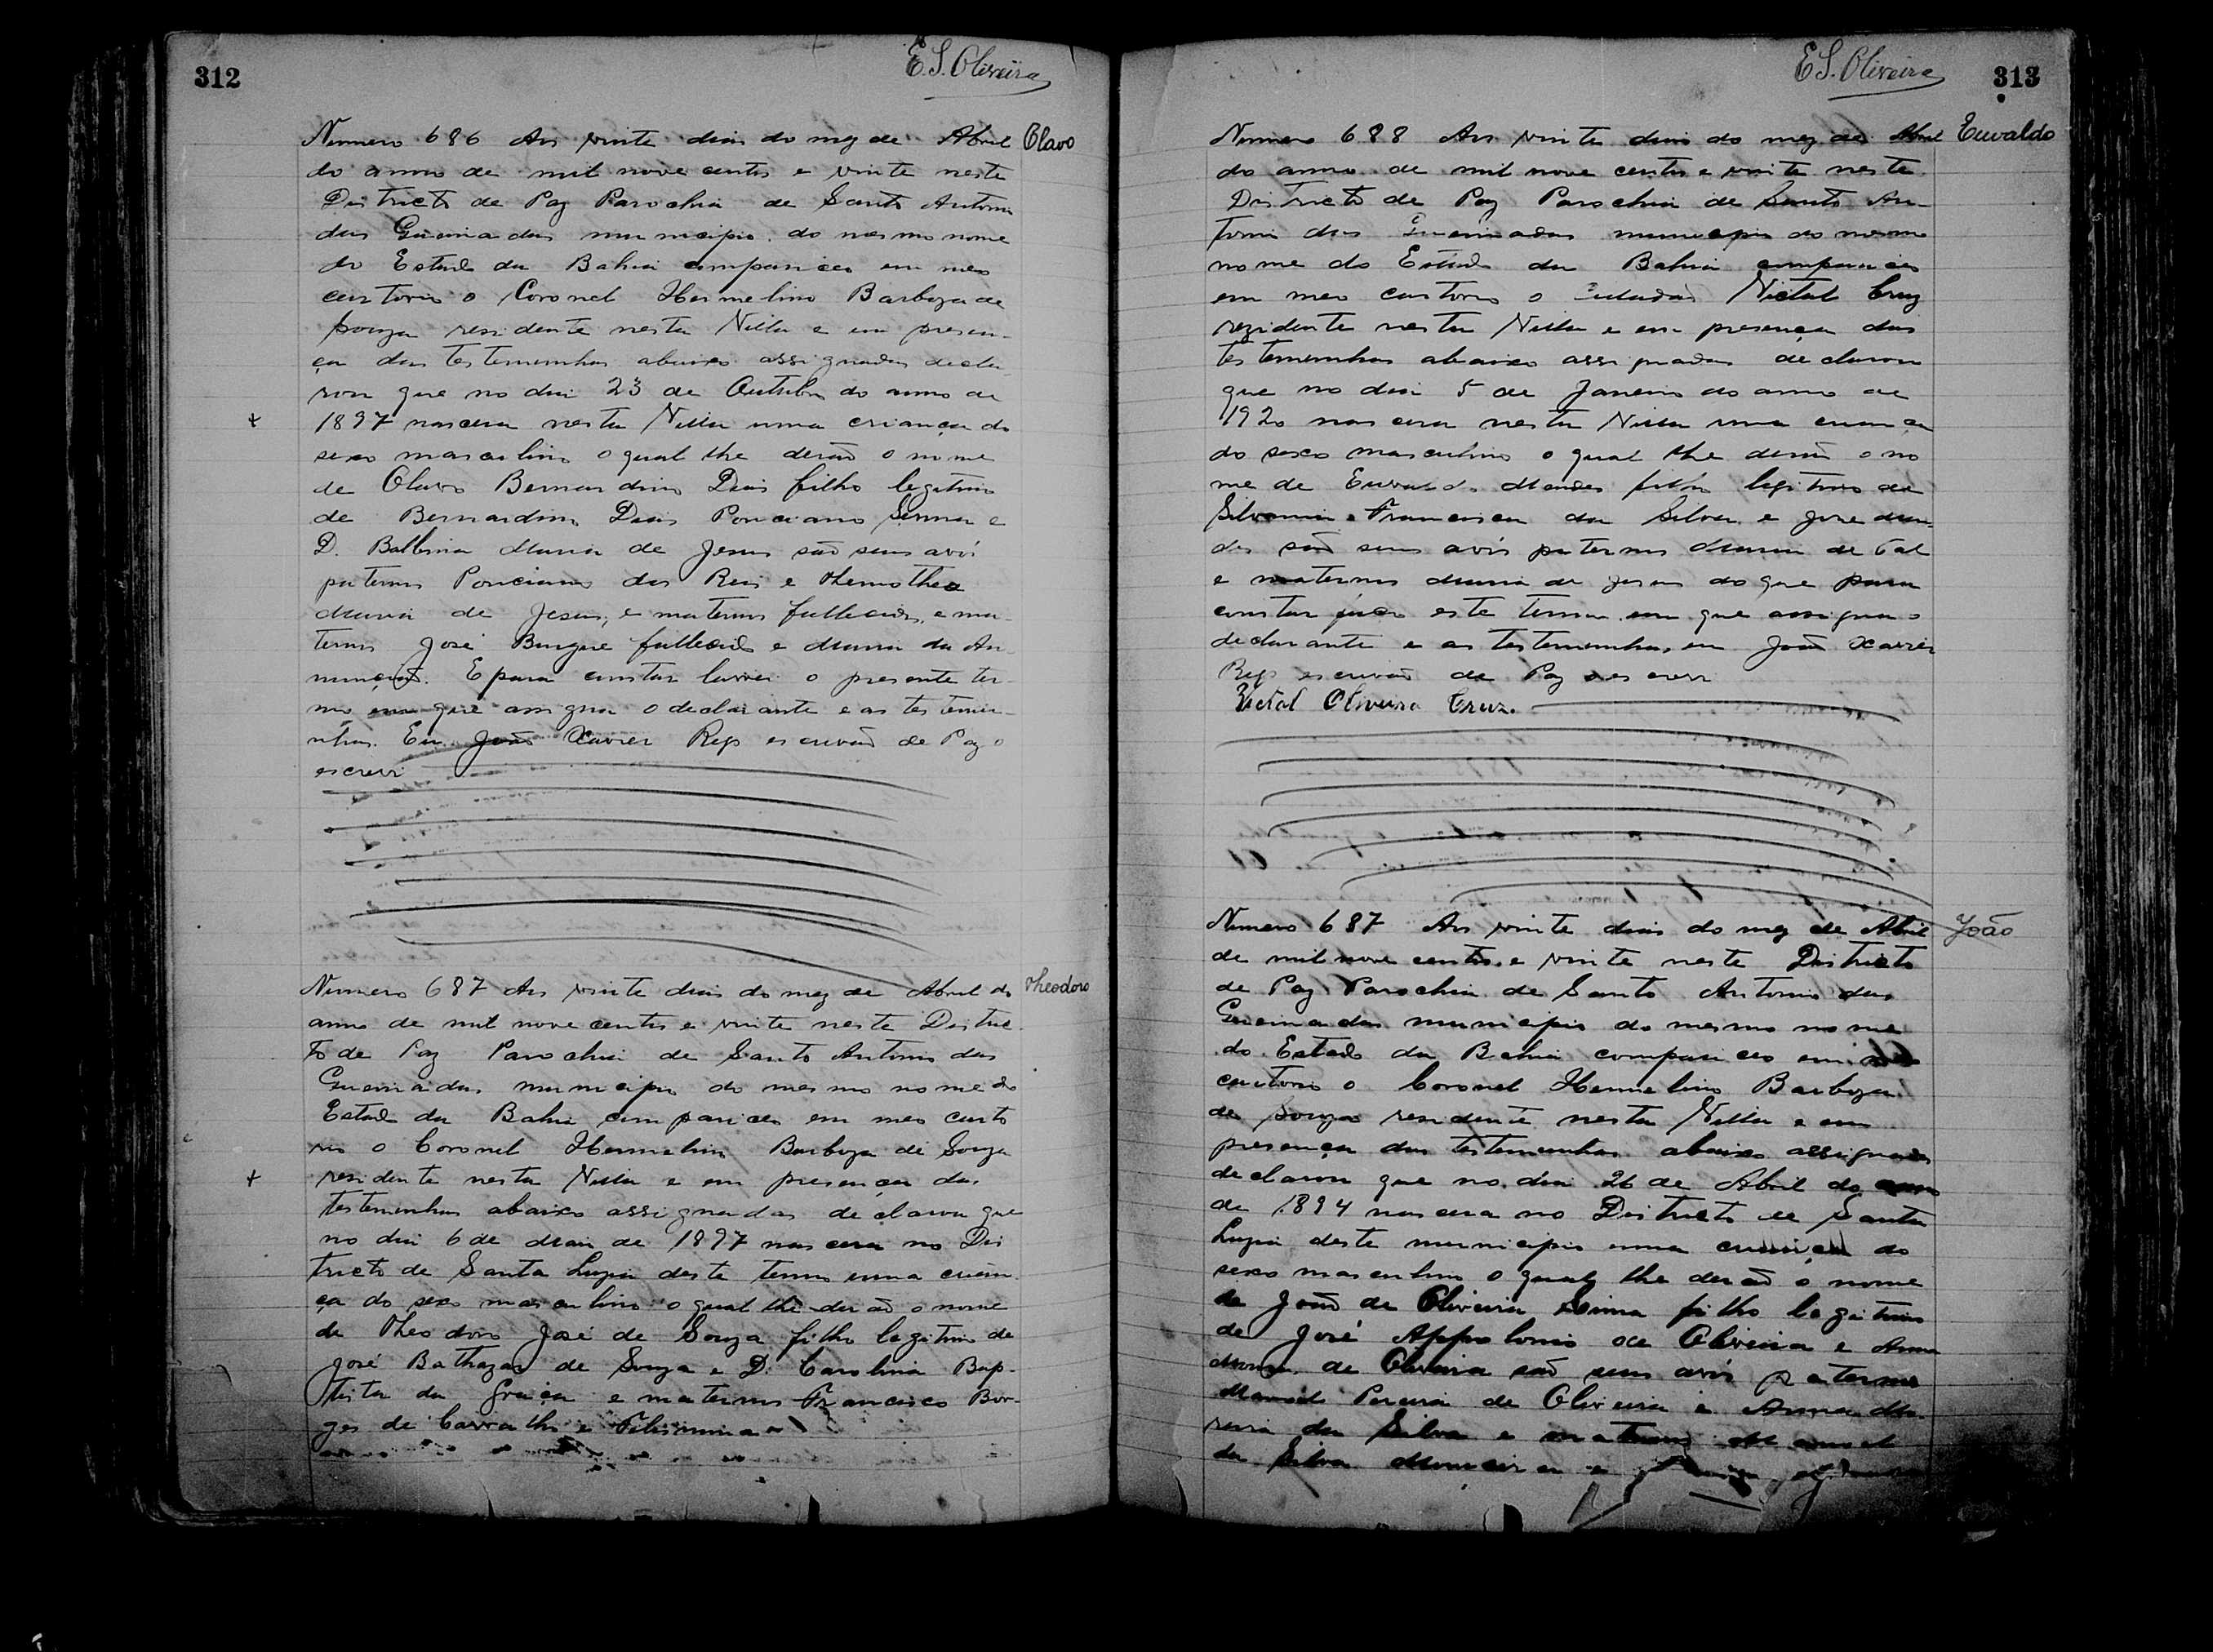 312
E. S. Oliveira
Numero 686 Aos vinte dias do mez de Abril
Olavo
do anno de mil nove centos e vinte neste
Districto de Paz Parochia de Santo Antonio
das Queimadas municipio do mesmo nome
do Estado da Bahia compareceo em meo
cartorio o Coronel Hermelino Barboza de
Souza residente nesta Villa e em presen-
ça das testemunhas abaixo assignadas decla-
rou que no dia 23 de Outubro do anno de
1897 nascera nesta Villa uma criança do
sexo masculino o qual lhe derão o nome
de Olavo Bernardino Dias filho legitimo
de Bernardino Dias Ponciano e
D. Balbina Maria de Jesus são seus avós
paternos Ponciano dos Reis e
Maria de Jesus, e maternos fallecidos, e ma-
ternos José fallecido e Maria da An-
nunciação. E para constar lavrei o presente ter-
mo em que assigna o declarante e as testemu-
nhas. Eu João Xavier Rego escrivão de Paz o
escrevi
Numero 687 Aos vinte dias do mez de Abril do
Theodoro
anno de mil nove centos e vinte neste Distric-
to de Paz Parochia de Santo Antonio das
Queimadas municipio do mesmo nome do
Estado da Bahia compareceo em meo carto
rio o Coronel Hermelino Barboza de Souza
residente nesta Villa e em presença das
testemunhas abaixo assignadas declarou que
no dia 6 de Maio de 1897 nascera no Dis
tricto de Santa Luzia deste termo uma crian-
ça do sexo masculino o qual lhe derão o nome
de Theodoro José de Souza filho legitimo de
José Balthazar de Souza e D. Carolina Bap-
tista da Graça e maternos Francisco Bor-
ges de Carvalho e
E. S. Oliveira
313
Numero 688 Aos vinte dias do mez de Abril
Euvaldo
do anno de mil nove centos e vinte neste
Districto de Paz Parochia de Santo An-
tonio das Queimadas municipio do mesmo
nome do Estado da Bahia compareceo
em meo cartorio o cidadão Victal Cruz
rezidente nesta Villa e em presença das
testemunhas abaixo assignadas declarou
que no dia 5 de Janeiro do anno de
1920 nascera nesta Villa uma criança
do sexo masculino o qual lhe derão o no
me de Euvaldo Mendes filho legitimo de
Silvania Francisca da Silva e José Men-
des são seus avós paternos Maria de tal
e maternos Maria de Jesus do que para
constar faço este termo em que assigna o
declarante e as testemunhas, eu João Xavier
Rego escrivão de Paz o escrevi
Victal Oliveira Cruz.
Numero 687 Aos vinte dias do mez de Abril
João
de mil nove centos e vinte neste Districto
de Paz Parochia de Santo Antonio das
Queimadas municipio do mesmo nome
do Estado da Bahia compareceo em meo
cartorio o Coronel Hermelino Barboza
de Souza residente nesta Villa e em
presença das testemunhas abaixo assignadas
declarou que no dia 26 de Abril do anno
de 1894 nascera no Districto de Santa
Luzia deste municipio uma criança do
sexo masculino o qual lhe derão o nome
de João de Oliveira Lima filho legitimo
de José Appolonio de Oliveira e Anna
de Oliveira são seus avós paternos
Manoel Pereira de Oliveira e Anna Mo-
reira da Silva e maternos Manoel
da Silva Moreira e